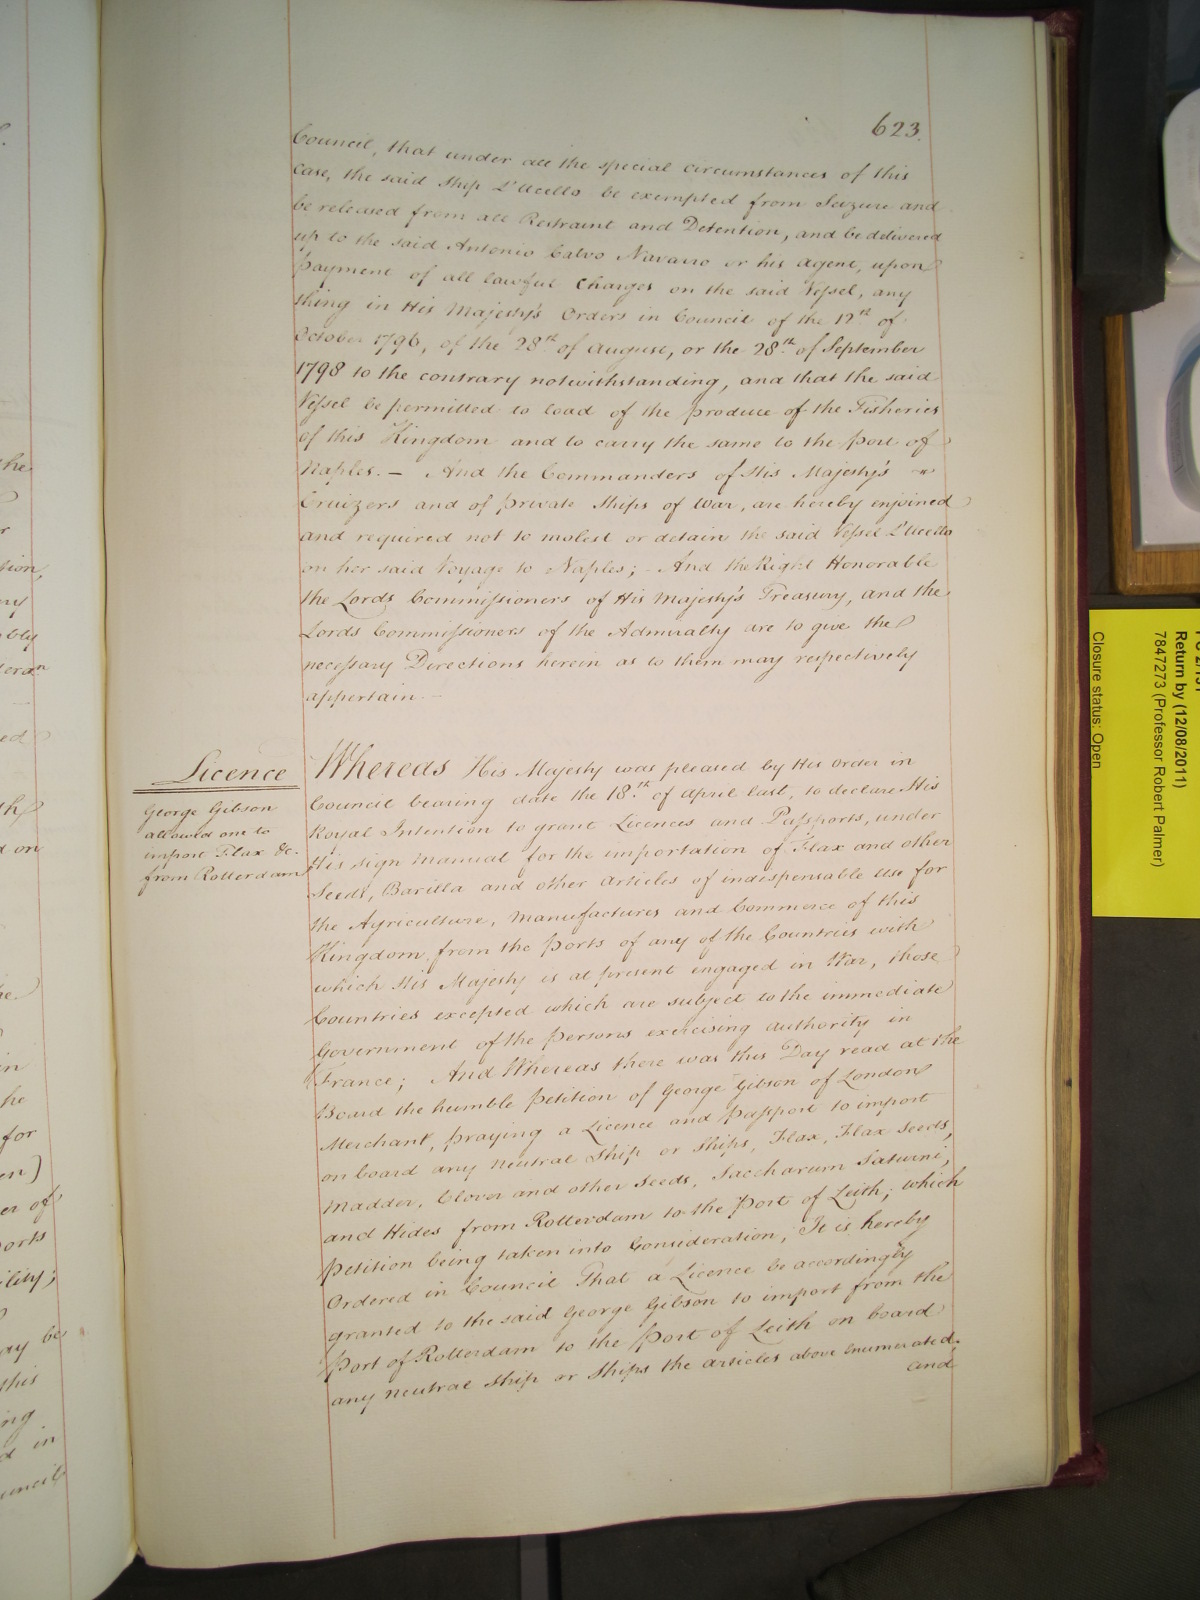 623.
Council, that under all the special circumstances of this
Case, the said Ship L'Ucello be exempted from Seizure and
be released from all Restraint and Detention, and be delivered
up to the said Antonio Calvo Navarro or his Agent, upon
payment of all lawful Charges on the said Vessel, any
thing in His Majesty's Orders in Council of the 12th of
October 1796, of the 28th of August, or the 28th of September
1798 to the contrary notwithstanding, and that the said
Vessel be permitted to load of the produce of the Fisheries
of this Kingdom and to carry the same to the Port of
Naples. — And the Commanders of His Majesty's
Cruizers and of private Ships of War, are hereby enjoined
and required not to molest or detain the said Vessel L'Ucello
on her said Voyage to Naples; - And the Right Honorable
the Lords Commissioners of His Majesty's Treasury, and the
Lords Commissioners of the Admiralty are to give the
necessary Directions herein as to them may respectively
appertain. —
Licence
George Gibson
allowed one to
import Flax &c.
from Rotterdam
Whereas His Majesty was pleased by His Order in
Council bearing date the 18th of April last, to declare His
Royal Intention to grant Licences and Passports, under
His sign manual for the importation of Flax and other
Seeds, Barilla and other articles of indispensable use for
the Agriculture, Manufactures and Commerce of this
Kingdom from the Ports of any of the Countries with
which His Majesty is at present engaged in War, those
Countries excepted which are subject to the immediate
Government of the Persons exercising authority in
France; And Whereas there was this Day read at the
Board the humble Petition of George Gibson of London
Merchant, praying a Licence and Passport to import
on board any neutral Ship or Ships, Flax, Flax Seeds,
Madder, Clover and other Seeds, Saccharum Saturni,
and Hides from Rotterdam to the Port of Leith; which
Petition being taken into Consideration; It is hereby
Ordered in Council That a Licence be accordingly
granted to the said George Gibson to import from the
Port of Rotterdam to the Port of Leith on board
any neutral Ship or Ships the articles above enumerated.
and
Return by (12/08/2011)
7847273 (Professor Robert Palmer)
Closure status: Open